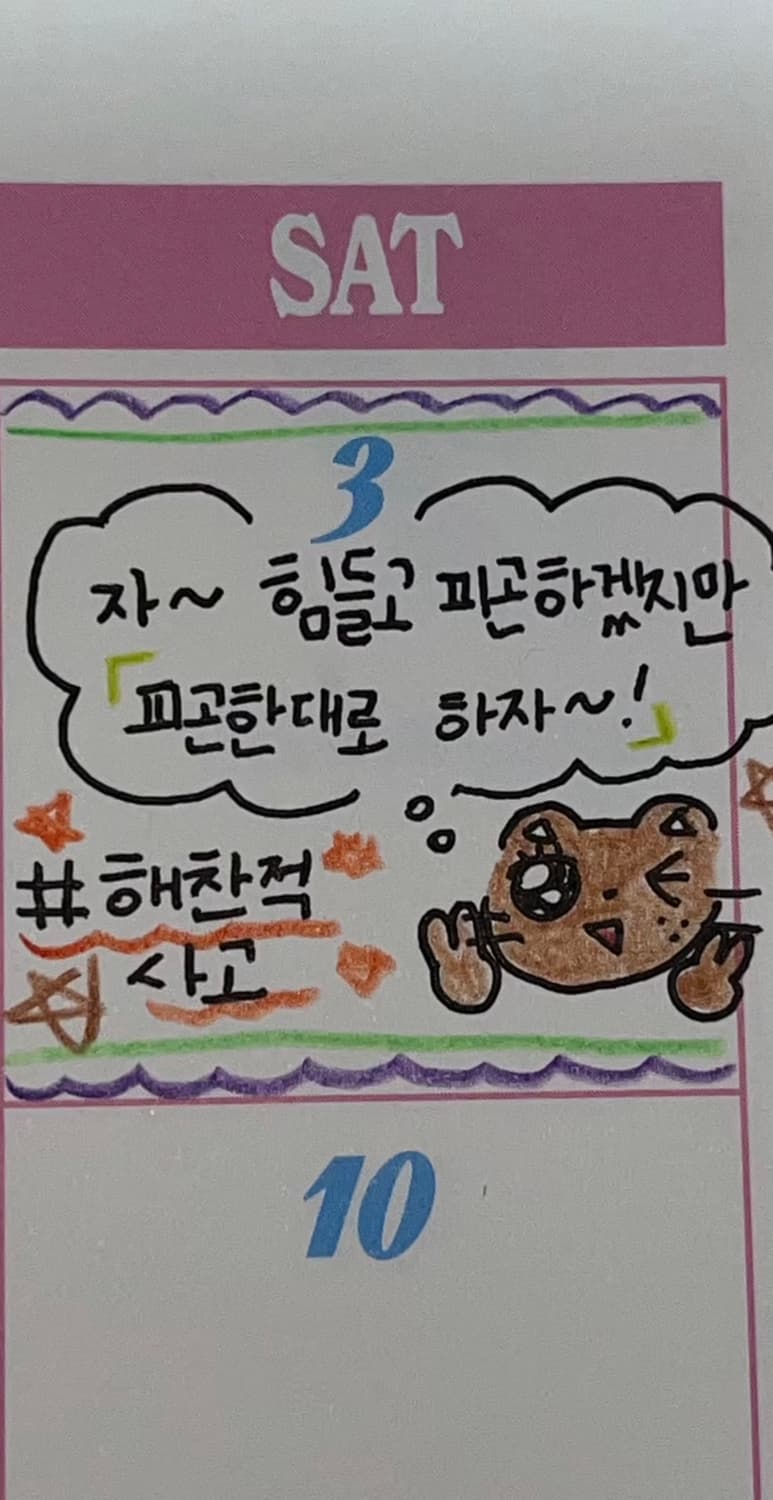 SAT
3
자~ 힘들고 피곤하겠지만
「피곤한대로 하자~!」
#해찬적
사고
10